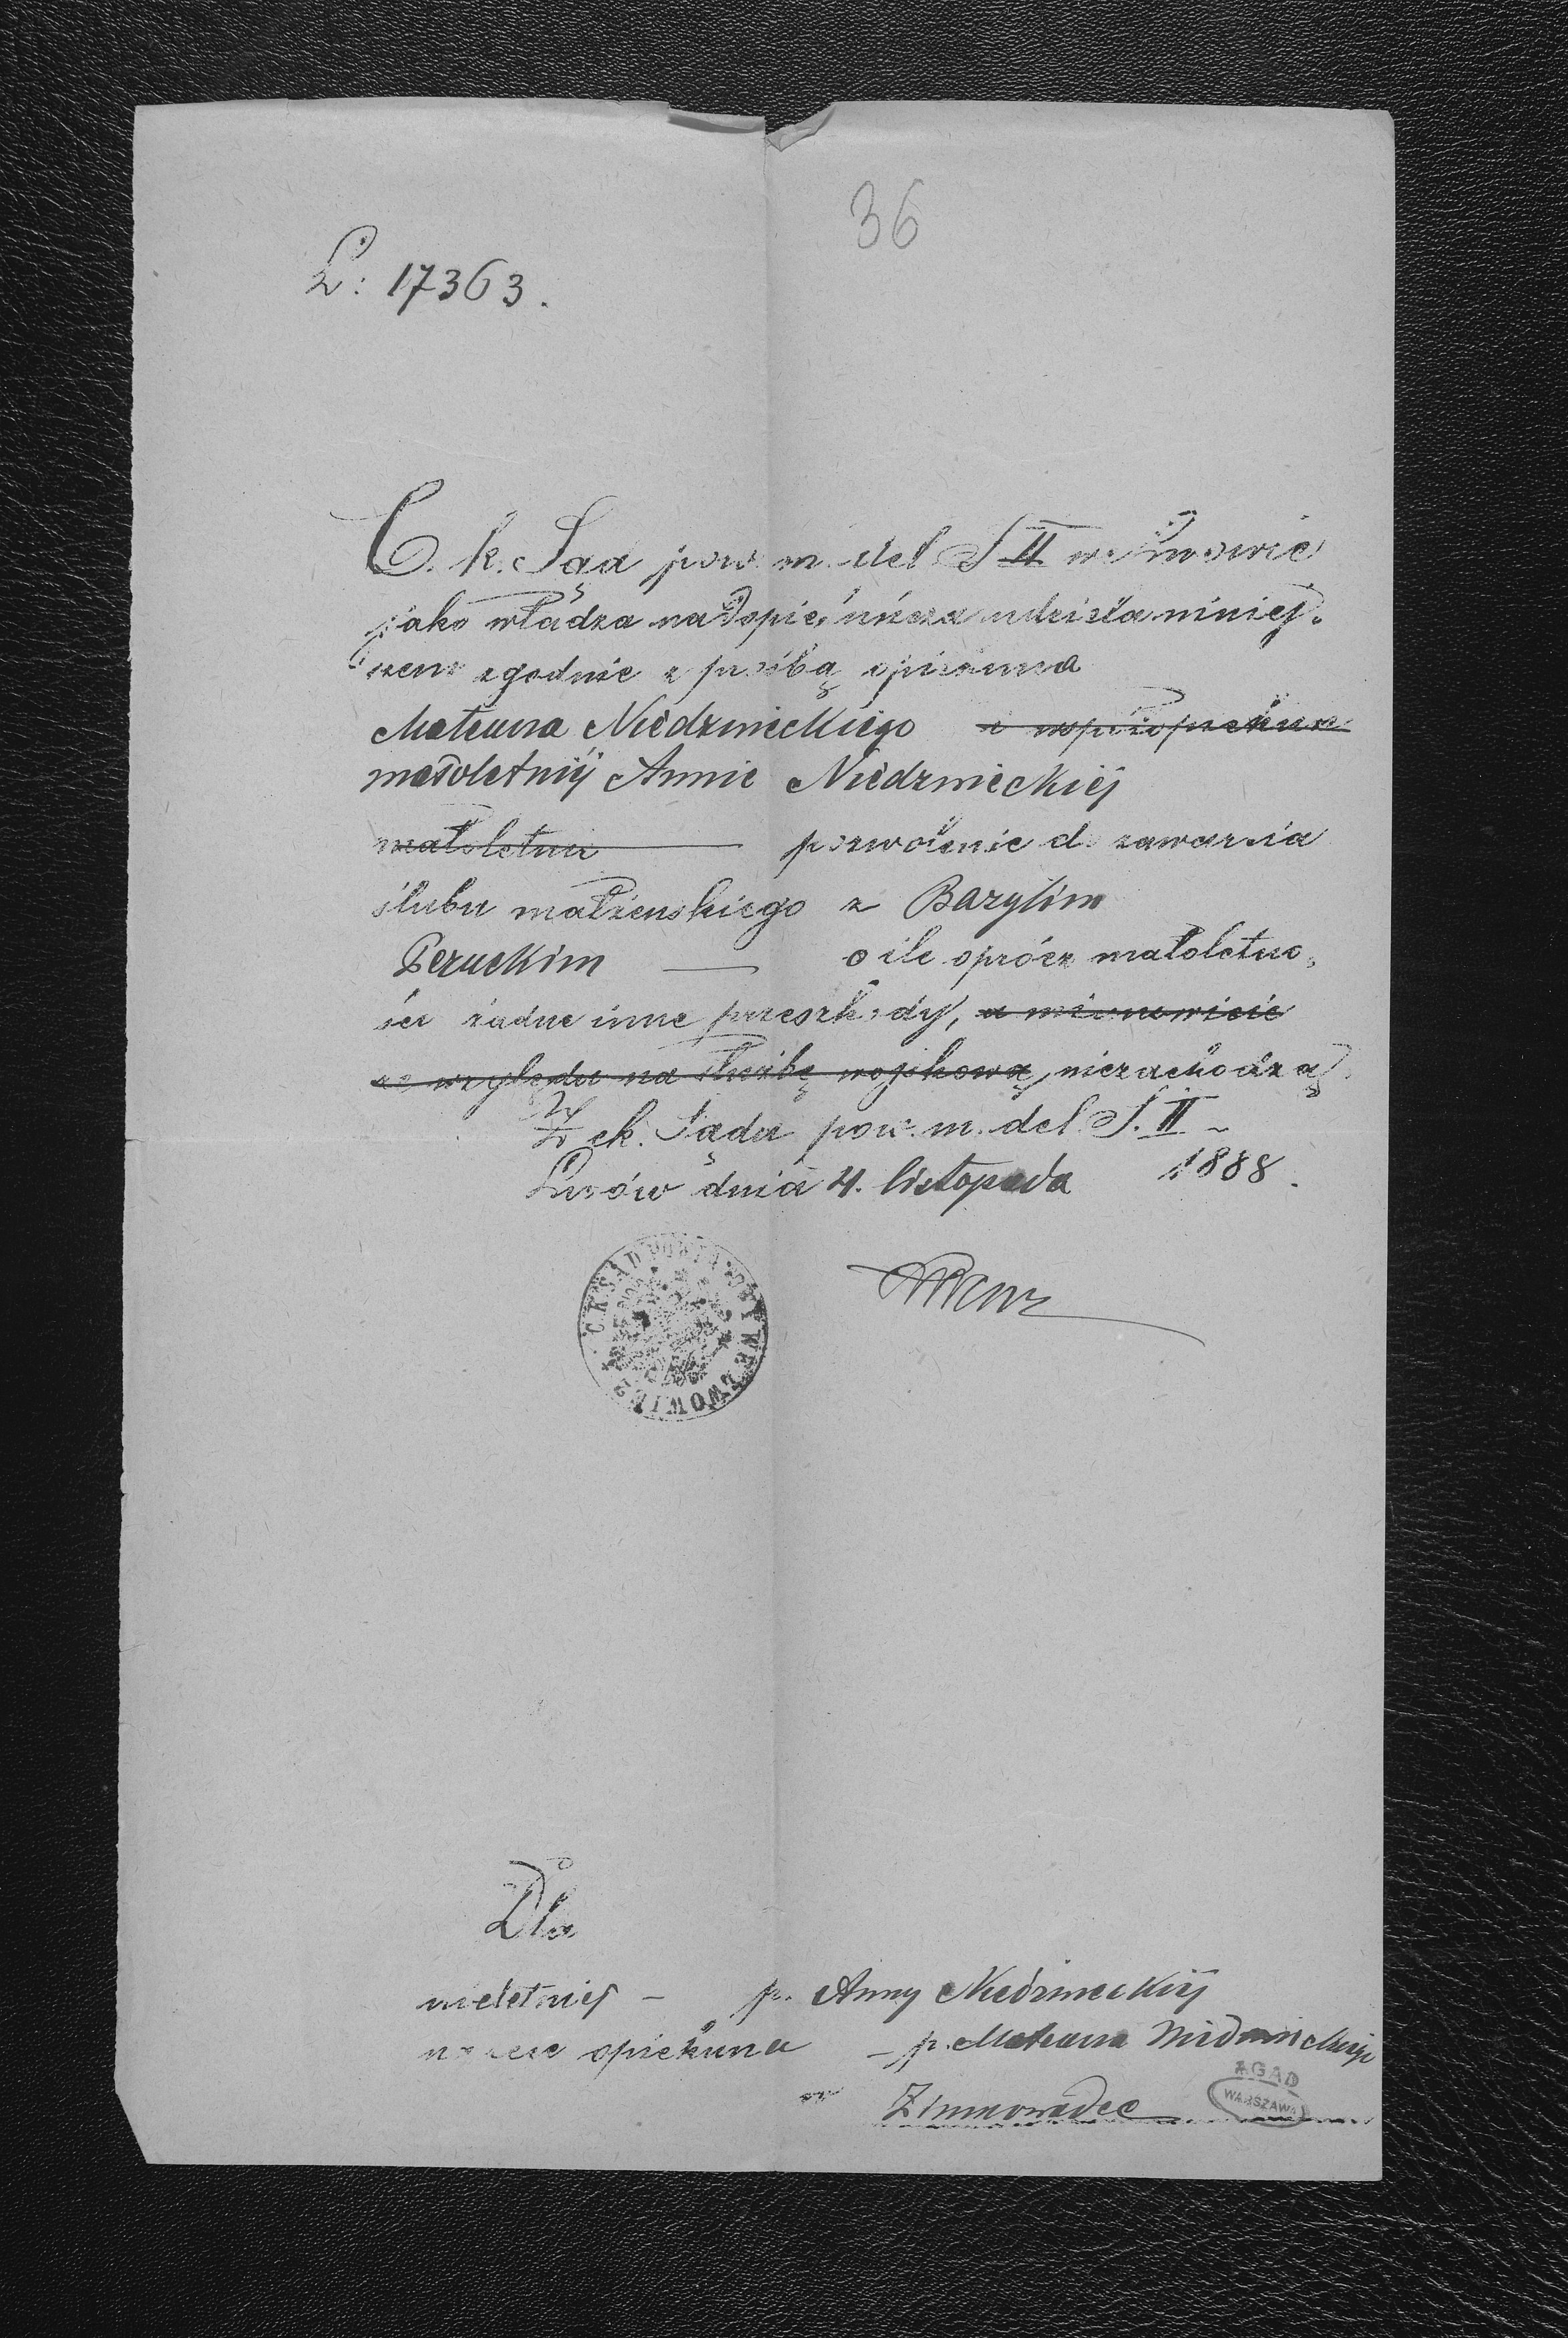 36
L: 17363.
C. k. Sąd pow. m. del. S II we Lwowie
jako władza nadopiekuńcza udziela niniej-
szem zgodnie z prośbą opiekuna
Mateusza Niedzwieckiego i współopiekuna
małoletnij Annie Niedzwieckiej
małoletnu pozwolenie do zawarcia
ślubu małżeńskiego z Bazylim
Peruckim — o ile oprócz małoletno-
ści żadne inne przeszkody, a mianowicie
ze względu na służbę wojskową, niezachodzą
Z ck. Sądu pow. m. del. S. II
Lwów dnia 4. listopada 1888.
C.K. SĄD POWIA WE LWOWIE
Dla
nieletniej – p. Anny Niedzwieckij
na ręce opiekuna – p. Mateusza
w Zimnowodce
AGAD
WARSZAWA